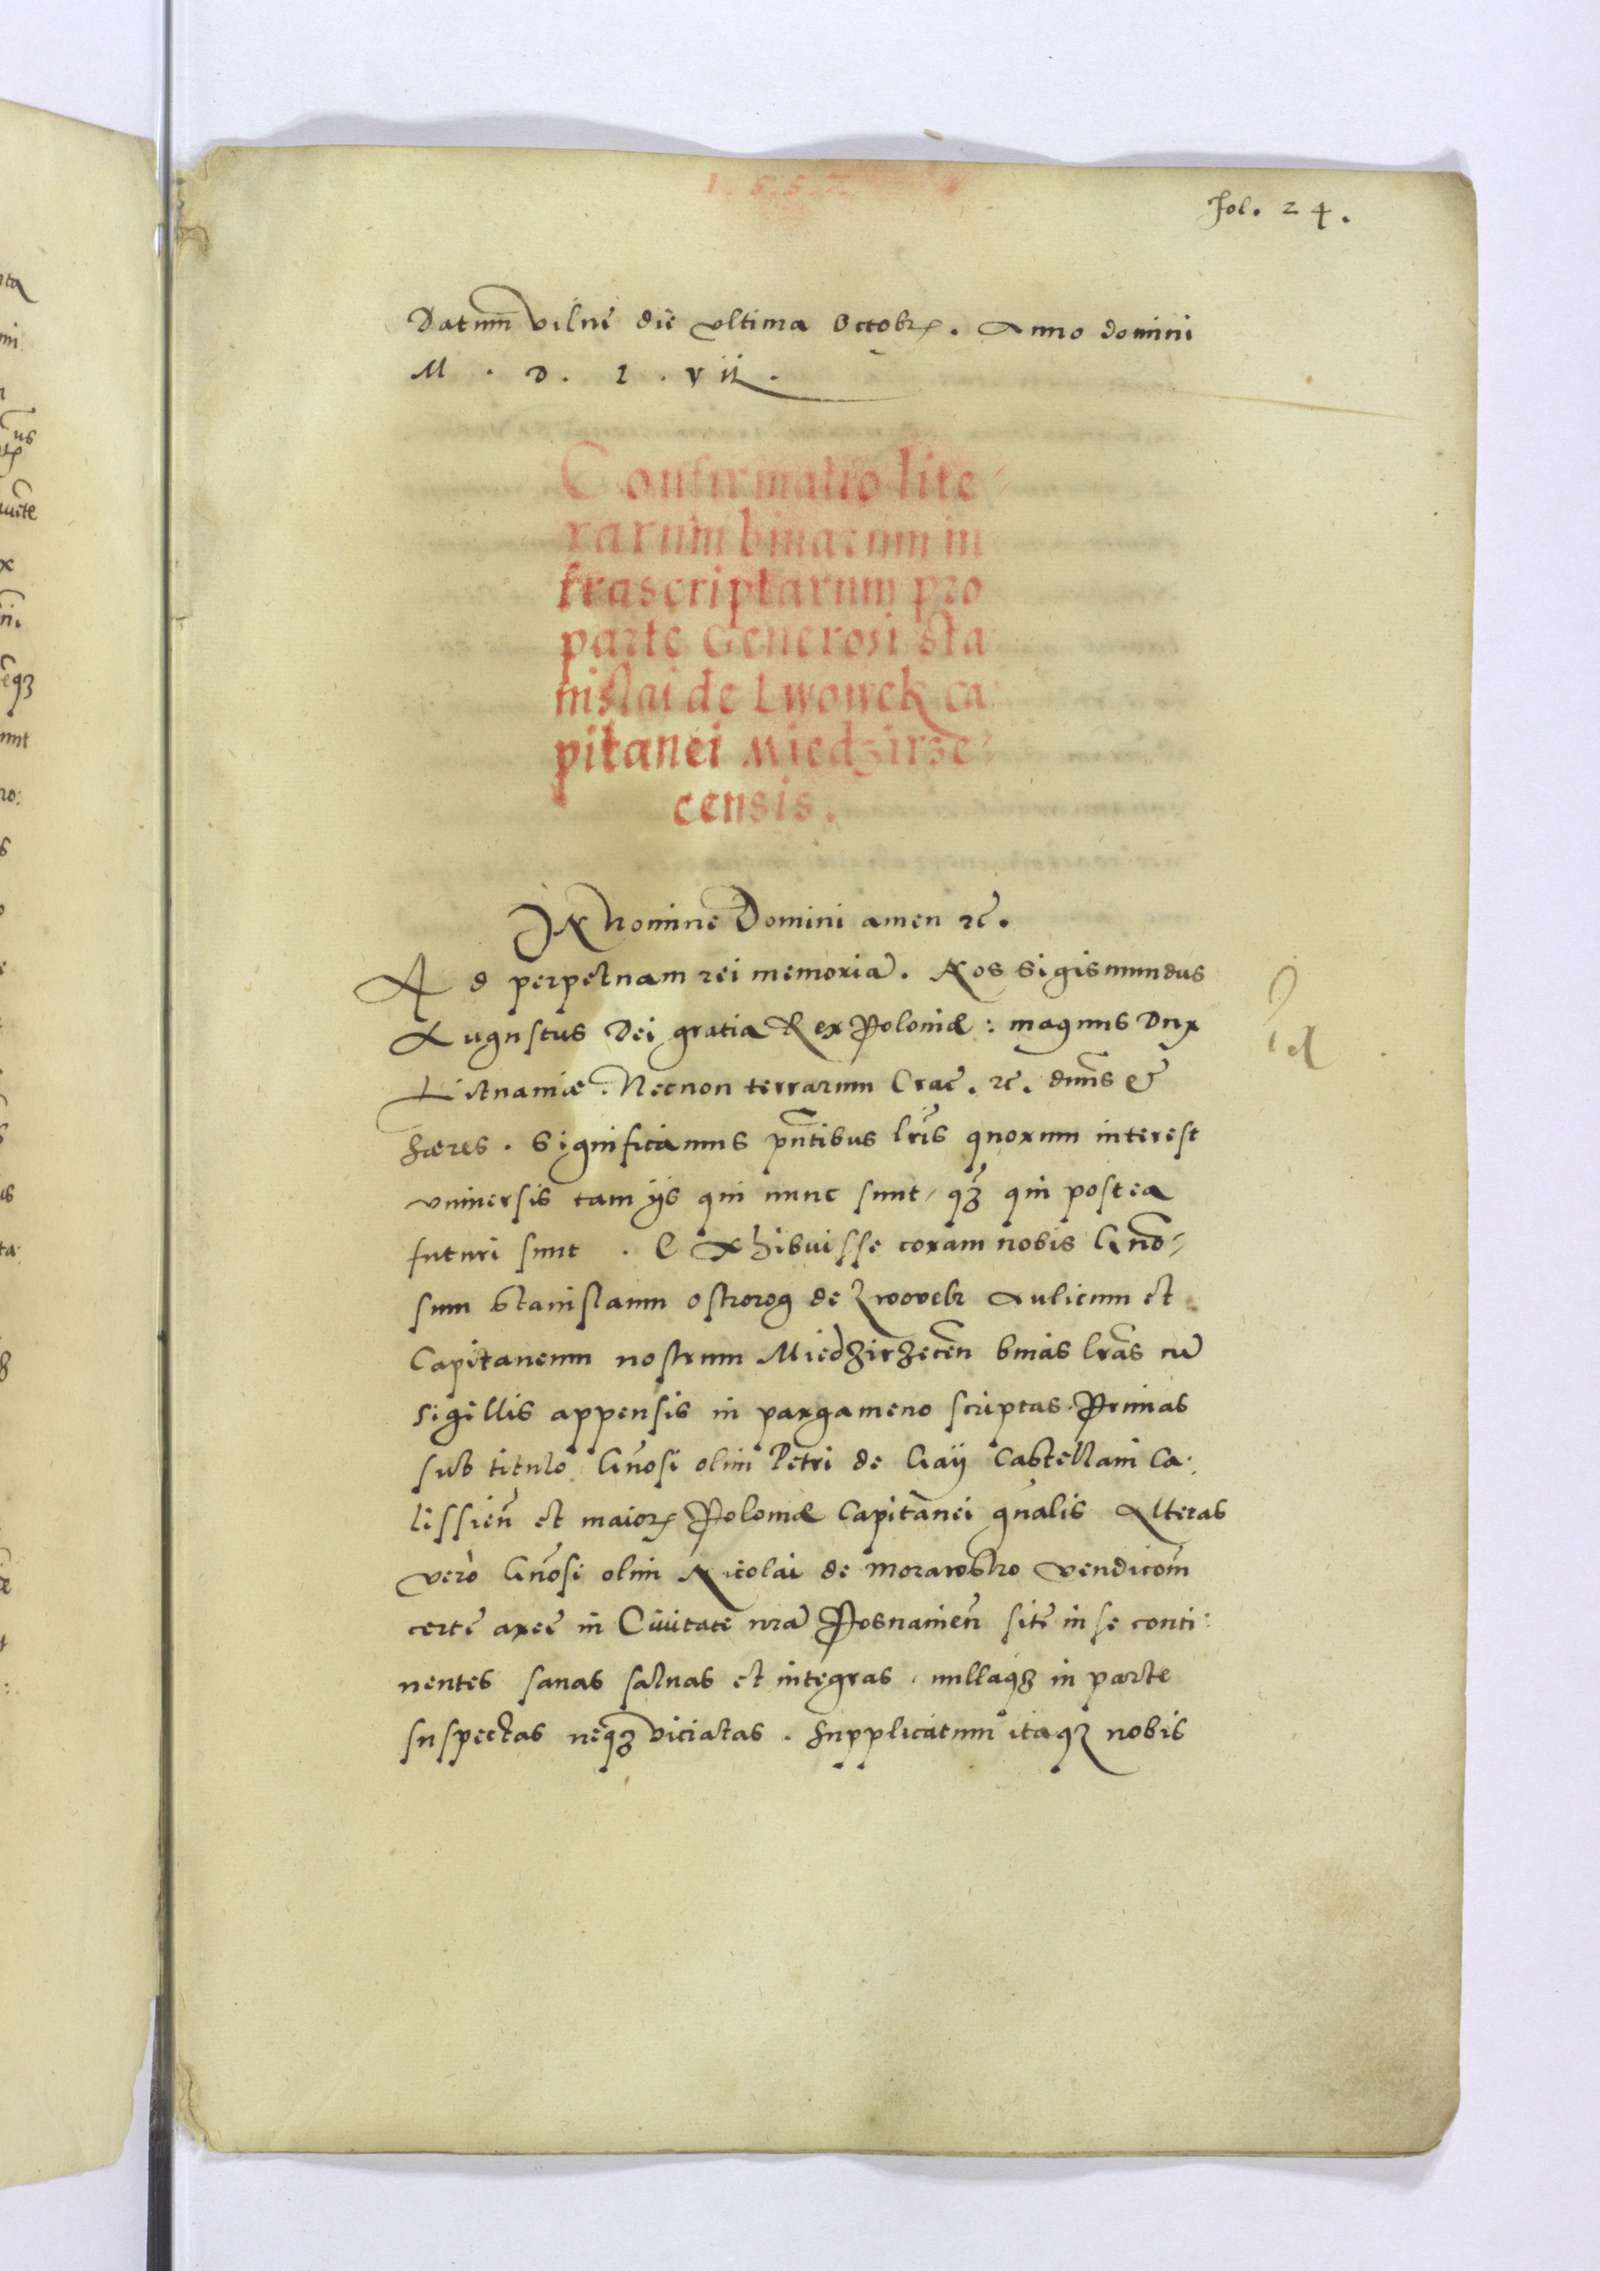 1.5.5.7.
Fol. 24.
Datum Vilnę die vltima Octobr. Anno domini
M . D . L . VII .
Confirmatio lite=
rarum binarum in
frascriptarum pro
parte Generosi Sta
nislai de Lwowek Ca
pitanei Miedzirze=
censis.
In Nomine Domini amen ꝛc̄.
Ad perpetuam rei memoriā. Nos Sigismundus
Augustus Dei gratia Rex Poloniæ: magnus Dux
Lituaniæ. Necnon terrarum Crac̄. ꝛc̄. dnn̄s &
hæres. Significamus pn̄tibus lrīs quorum interest
vniuersis tam ijs qui nunc sunt, qꝫ̄ qui postea
futuri sunt . Exhibuisse coram nobis Gn̄o=
sum Stanislaum Ostrorog de Lwowek Aulicum et
Capitaneum nostrum Miedzirzecen̄ binas lrās cū
sigillis appensis in pargameno scriptas. Primas
sub titulo Gn̄osi olim Petri de Gaij Castellani Ca:
lissien̄ et maior. Poloniæ Capitanei gn̄alis Alteras
vero Gn̄osi olim Nicolai de Morawsko vendicōm̄
certę areę in Ciuitate nr̄a Posnanien̄ sitę in se conti:
nentes sanas saluas et integras, nullaqꝫ in parte
suspectas neqꝫ viciatas. Supplicatum itaqꝫ nobis